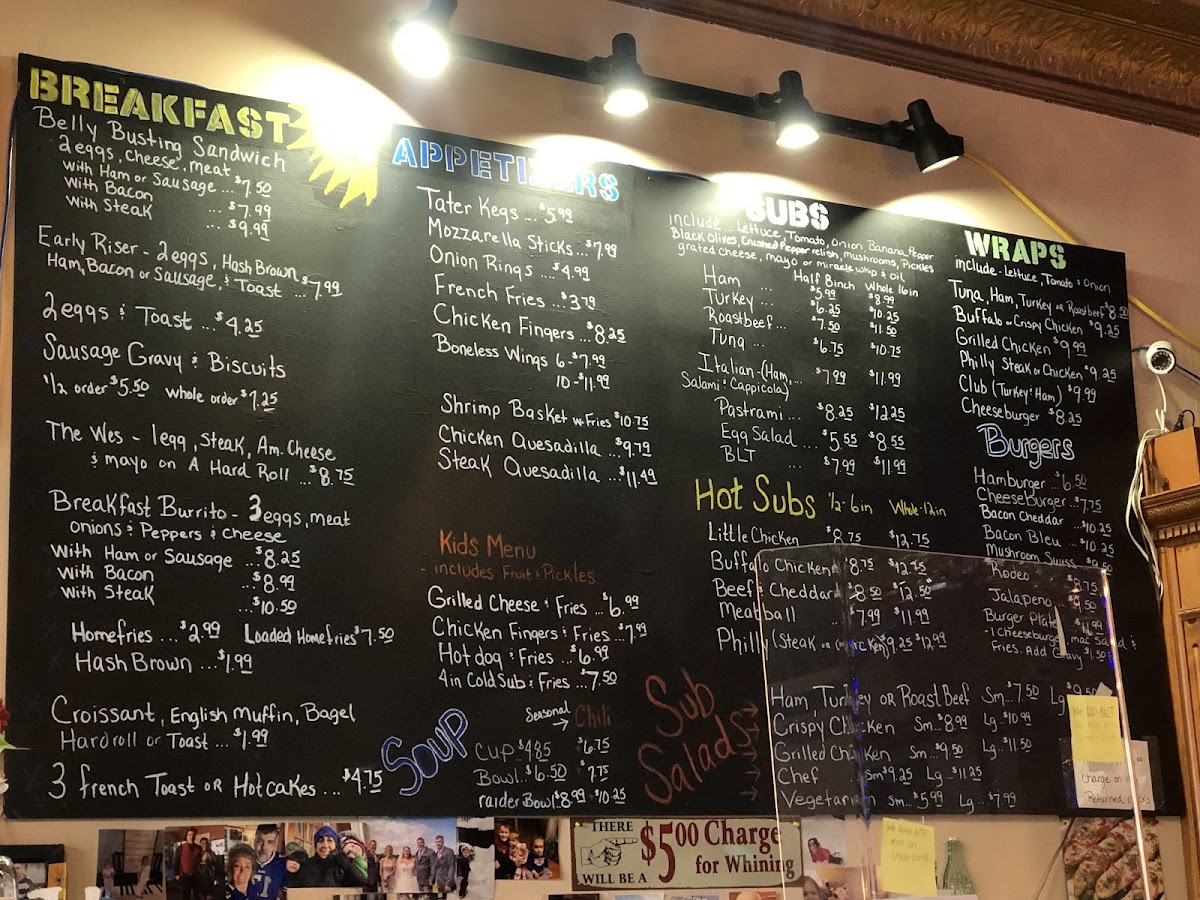 BREAKFAST
Belly Busting Sandwich
2 eggs, cheese, meat
with Ham or Sausage ... $7.50
with Bacon ... $7.99
with Steak ... $9.99
Early Riser - 2 eggs, Hash Brown
Ham, Bacon or Sausage, & Toast ... $7.99
2 eggs & Toast ... $4.25
Sausage Gravy & Biscuits
1/2 order $5.50 whole order $7.25
The Wes - 1 egg, Steak, Am. Cheese
& mayo on A Hard Roll ... $8.75
Breakfast Burrito - 3 eggs, meat
onions & Peppers & cheese
with Ham or Sausage ... $8.25
with Bacon ... $8.99
with Steak ... $10.50
Homefries ... $2.99 Loaded Homefries $7.50
Hash Brown ... $1.99
Croissant, English Muffin, Bagel
Hardroll or Toast ... $1.99
3 french Toast or Hotcakes ... $4.75
APPETIZERS
Tater Kegs ... $5.99
Mozzarella Sticks ... $7.99
Onion Rings ... $4.99
French Fries ... $3.79
Chicken Fingers ... $8.25
Boneless Wings 6 - $7.99
10 - $11.99
Shrimp Basket w-Fries $10.75
Chicken Quesadilla ... $9.79
Steak Quesadilla ... $11.49
Kids Menu
- includes Fruit & Pickles
Grilled Cheese & Fries ... $6.99
Chicken Fingers & Fries ... $7.99
Hotdog & Fries ... $6.99
4in Cold Sub & Fries ... $7.50
Soup
Seasonal → Chili
Cup $4.85 $6.75
Bowl $6.50 $7.75
raider Bowl $8.99 - $10.25
SUBS
include ... Lettuce, Tomato, Onion, Banana Pepper
Black Olives, Crushed Pepper relish, mushrooms, Pickles
grated cheese, mayo or miracle whip & oil
Half 8inch Whole 16in
Ham ... $5.99 $8.99
Turkey ... $6.25 $10.25
Roastbeef ... $7.50 $11.50
Tuna ... $6.75 $10.75
Italian - (Ham, ... $7.99 $11.99
Salami & Cappicola)
Pastrami ... $8.25 $12.25
Egg Salad ... $5.55 $8.55
BLT ... $7.99 $11.99
Hot Subs 1/2 - 6in Whole - 12in
Little Chicken $8.75 $12.75
Buffalo Chicken $8.75 $12.75
Beef & Cheddar $8.50 $12.50
Meatball $7.99 $11.99
Philly (Steak or Chicken) $9.25 $12.99
Sub Salads
Ham, Turkey or Roast Beef Sm. $7.50 Lg. $9.50
Crispy Chicken Sm. $8.99 Lg. $10.99
Grilled Chicken Sm. $9.50 Lg. $11.50
Chef Sm $9.25 Lg ... $11.25
Vegetarian Sm ... $5.99 Lg ... $7.99
WRAPS
include - Lettuce, Tomato & Onion
Tuna, Ham, Turkey or Roastbeef $8.50
Buffalo or Crispy Chicken $9.25
Grilled Chicken $9.99
Philly Steak or Chicken $9.25
Club (Turkey & Ham) $9.99
Cheeseburger $8.25
Burgers
Hamburger ... $6.50
Cheeseburger .. $7.75
Bacon Cheddar ... $10.25
Bacon Bleu ... $10.25
Mushroom Swiss
Rodeo .. $8.75
Jalapeno ... $9.50
Burger Plate ... $11.99
- 1 Cheeseburger, mac salad &
Fries. Add Gravy $1.50
We DO NOT
Charge on
Returned
THERE WILL BE A $5.00 Charge for Whining